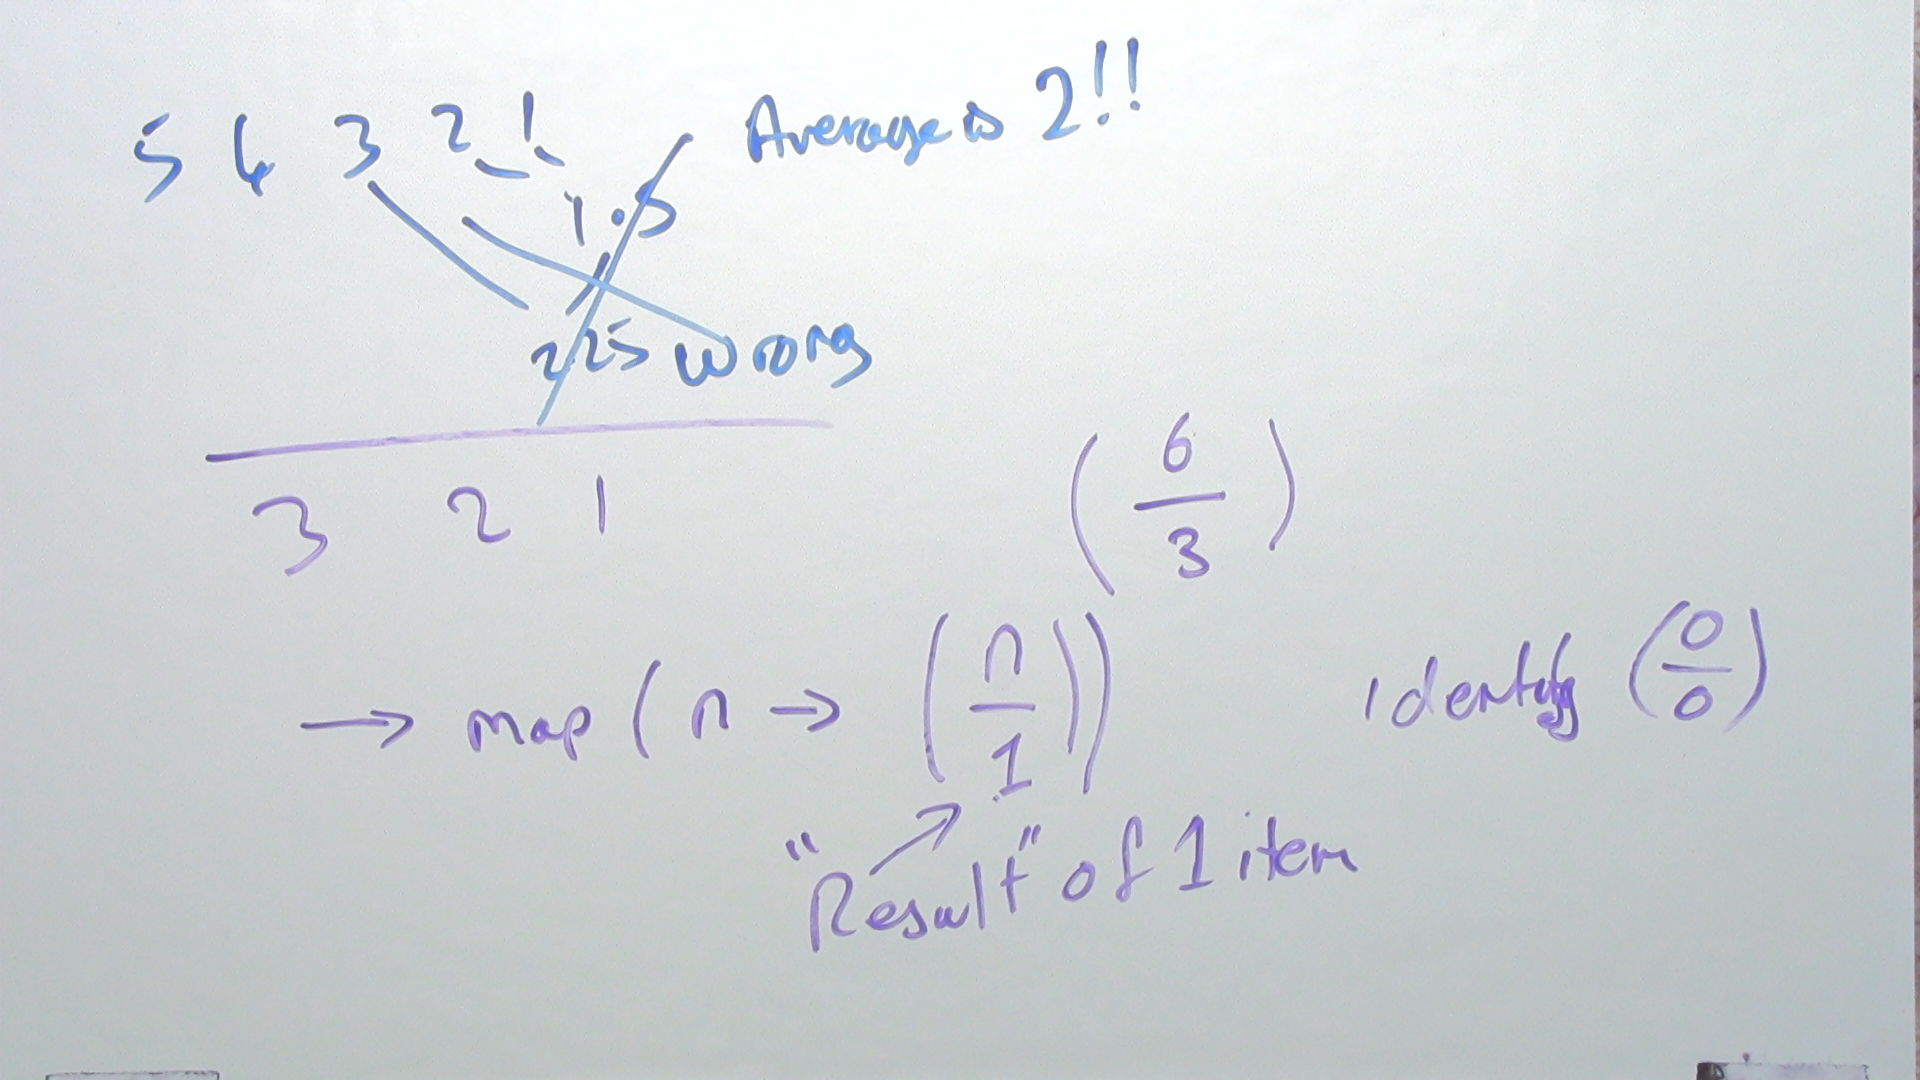 5 4 3 2 1
Average is 2!!
1.5
2.25 wrong
3 2 1
(6/3)
→ map (n → (n/1))
identity (0/0)
"Result" of 1 item